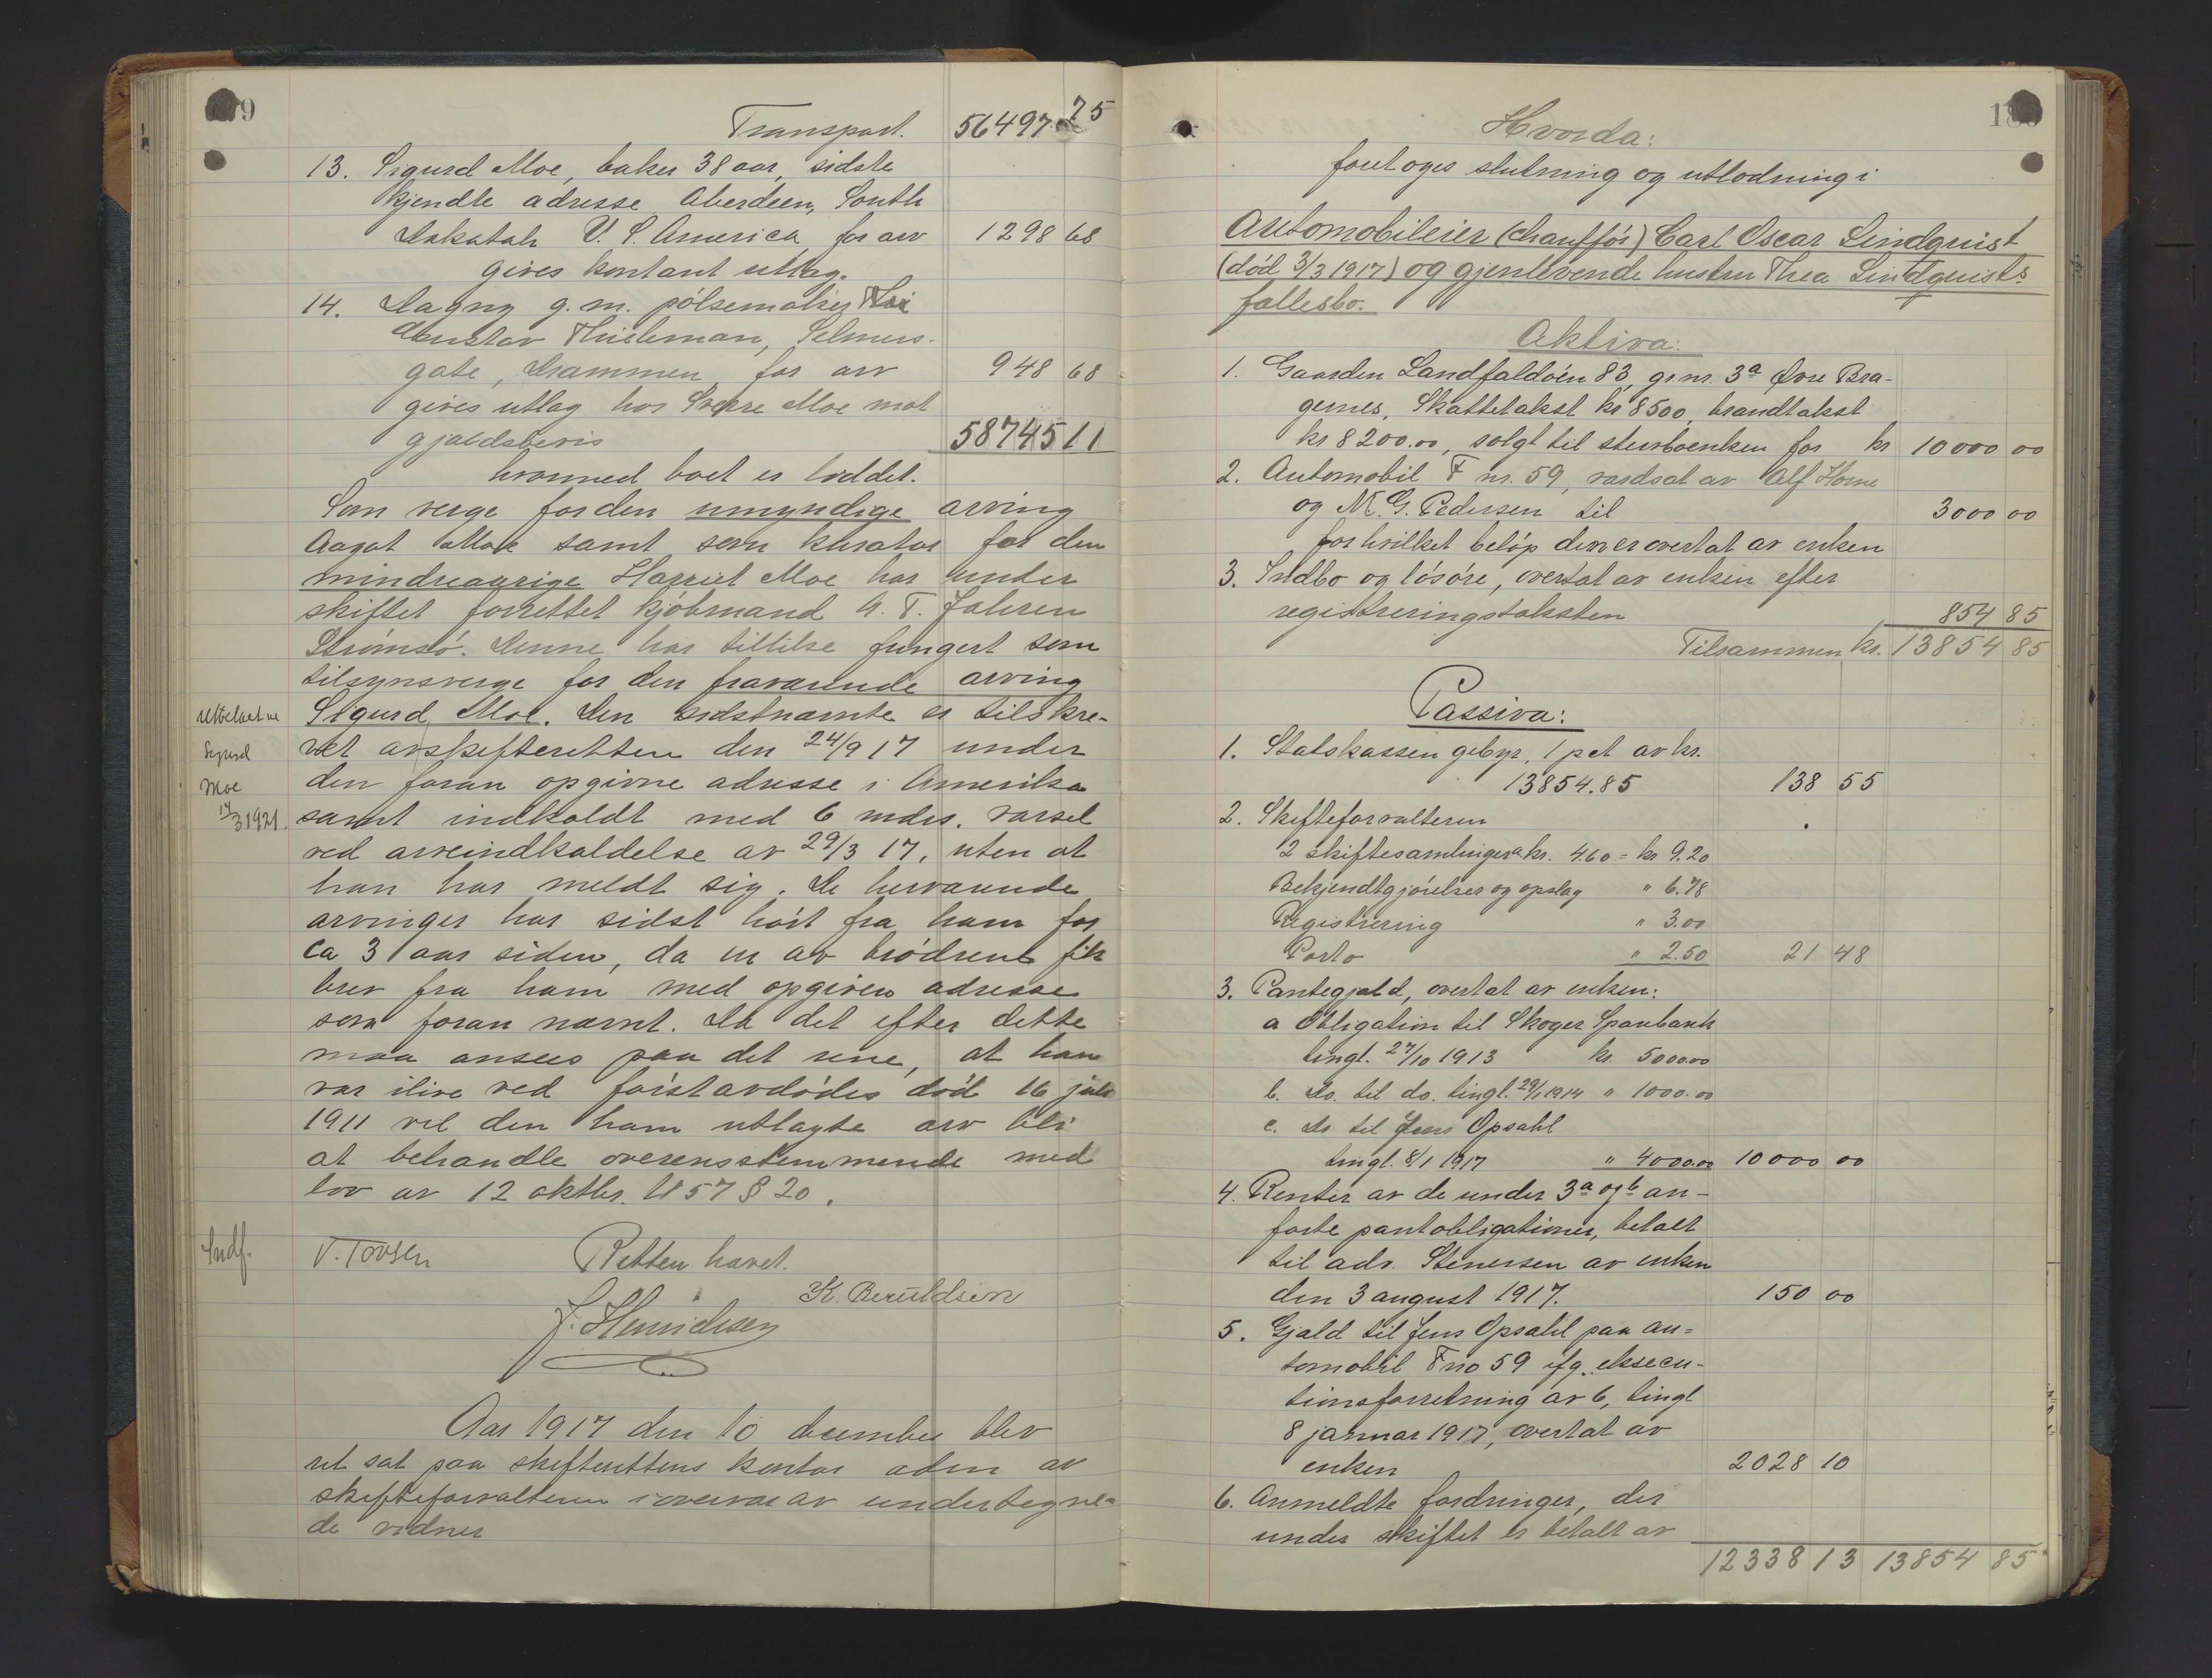 9
Transport. 56497.75
13. Sigurd Moe, baker 38 aar, sidste
kjendte adresse Aberdeen, South
Dakotah U. S. America, for arv 1298 68
gives kontant utlæg.
14. Dagny g.m. pølsemaker
Gustav Thieleman, Selmers-
gate, Drammen for arv 948 68
gives utlæg hos Sverre Moe mot
gjældsbevis 58745 11
hvormed boet er loddet.
Som verge for den umyndige arving
Aagot Moe samt som kurator for den
mindreaarige Harriet Moe har under
skiftet forrettet kjøbmand A. T. Jahren
Strømsø. Denne har tillike fungert som
tilsynsverge for den fraværende arving
Sigurd Moe. Den sidstnævnte er tilskre-
vet av skifteretten den 24/9 17 under
den foran opgivne adresse i Amerika
samt indkaldt med 6 mdrs. varsel
ved arveindkaldelse av 29/3 17, uten at
han har meldt sig. De herværende
arvinger har sidst hørt fra ham for
ca 3 aar siden, da en av brødrene fik
brev fra ham med opgiven adresse
som foran nævnt. Da det efter dette
maa ansees paa det rene, at han
var ilive ved førstavdødes død 16 juli
1911 vil den ham utlagte arv bli
at behandle overensstemmende med
lov av 12 oktbr. 1857 § 20.
Sigurd
Moe
17/3 1921.
Indf.
V. Tovsen Retten hævet.
K. Beruldsen
J. Henrichsen
Aar 1917 den 10 december blev
ret sat paa skifterettens kontor aden av
skifteforvalteren i overvær av undertegne-
de vidner
Hvorda:
foretoges slutning og utlodning i
Automobileier (chauffør) Carl Oscar Lindquist
(død 3/3 1917) og gjenlevende hustru Thea Lindquists
fællesbo.
Aktiva:
1. Gaarden Landfaldøen 83, gr.nr. 3a Øvre Bra-
gernes, Skattetakst kr 8500, brandtakst
kr 8200.00, solgt til stervboenken for kr 10000 00
2. Automobil F nr. 59, værdsat av Alf Horne
og M. G. Pedersen til 3000 00
for hvilket beløp den er overtat av enken
3. Indbo og løsøre, overtat av enken efter
registreringstaksten 854 85
Tilsammen kr. 13854 85
Passiva:
1. Statskassen gebyr, 1 pct av kr.
13854.85 138 55
2. Skifteforvalteren
2 skiftesamlinger a kr. 4.60 = kr 9.20
Bekjendtgjørelser og opslag " 6.78
Registrering " 3.00
Porto " 2.50 21 48
3. Pantegjæld, overtat av enken:
a Obligation til Skoger Sparebank
tingl. 27/10 1913 kr. 5000.00
b. Do. til do. tingl. 29/1 1914 " 1000.00
c. Do til Jens Opsahl
tingl. 8/1 1917 " 4000.00 10000 00
4. Renter av de under 3a og b an-
førte pantobligationer, betalt
til adv. Stenersen av enken
den 3 august 1917. 150 00
5. Gjæld til Jens Opsahl paa au-
tomobil F no 59 ifg. eksecu-
tionsforretning av 6, tingl
8 januar 1917, overtat av
enken 2028 10
6. Anmeldte fordringer, der
under skiftet er betalt av
12338 13 13854 85